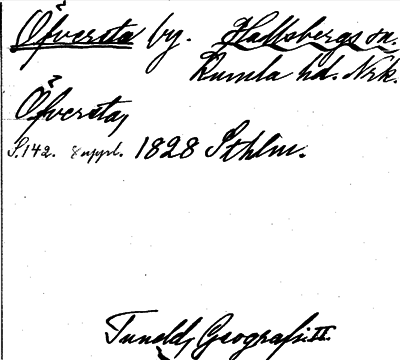 Öfversta by. Hallsbergs sn.
Kumla hd. Nrk.
Öfversta,
S.142. suppl. 1828 Sthlm.
Tuneld, Geografi. II.